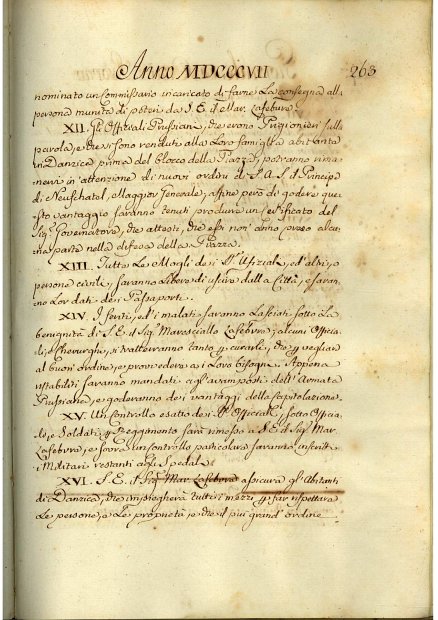 Anno MDCCCVII 263
nominato un Commissario incaricato di farne la consegna alla
persona munita di poteri da S. E. il Mar. Lasebure.
XII. Gli Offitiali Prussiani, che erono Prigionieri sulla
parola, e che si sono renduti alla Loro famiglia abitante
in Danzica prima del Blocco della Piazza, potranno rima-
nervi in attenzione di nuovi ordini di S. A. S. il Principe
di Neuschatel, Maggior Generale; affine però di godere que-
sto vantaggio saranno tenuti produrre un Certificato del
Sig. Governatore, che attesti, che essi non anno preso alcu-
na parte nella difesa della Piazza.
XIII. Tutte le Mogli dei SS. Ufiziali, ed altri, o
persone civili, saranno Libere di uscire dalla Città, e saran-
no Lor dati dei Passaporti.
XIV. I feriti, ed i malati saranno Lasciati sotto La
benignità di S. E. il Sig. Maresciallo Lasebure; alcuni Officia-
li, e Cherurghi, si tratterranno tanto p. curarli, che p. vegliar
al buon ordine, e provvedere ai Loro bisogni. Appena
ristabiliti saranno mandati agl'avamposti dell'Armata
Prussiana, e goderanno dei vantaggi della Capitolazione.
XV. Un Controllo esatto dei SS. Officiali, sotto Officia-
li, e Soldati p. Reggimento sarà rimesso a S. E. il Sig. Mar.
Lasebure, e sovra un controllo particolare saranno inscritti
i Militari restanti agli Spedali.
XVI. S. E. il Sig. Mar. Lasebure assicura gli Abitanti
di Danzica, che impiegherà tutti i mezzi p. far rispettare
Le persone, e Le proprietà, e che il più grand'ordine